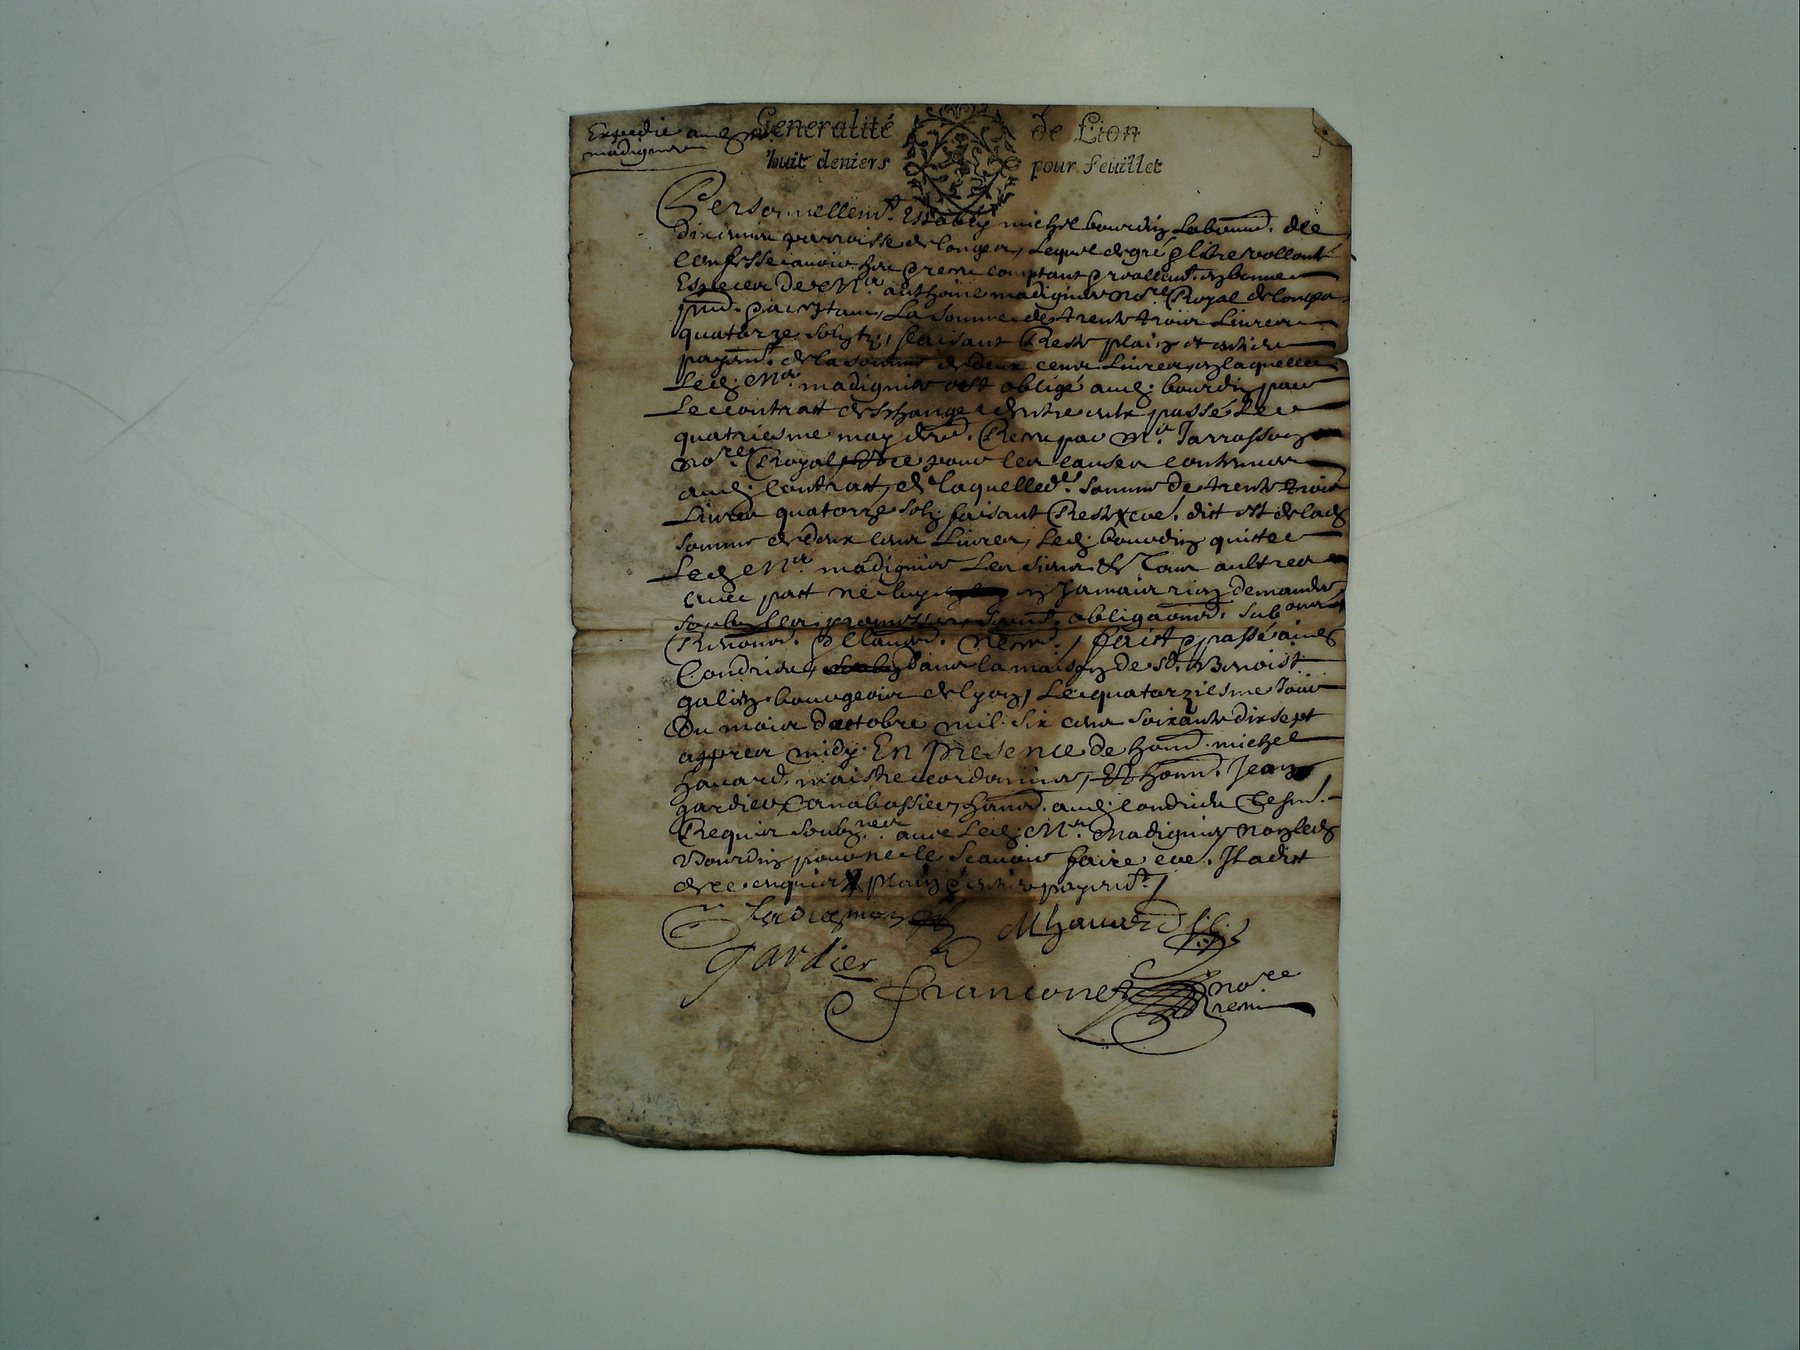 Expedié aud Mr
madignier
Generalité de Lion
huit deniers pour feuillet
Personnellemt. Estably michel bourdin labour. de
paroisse de longes, lequel de gré & libre vollonté
Confesse avoir heu & receu comptant & reallemt. en bonnes
Especes de Mr. anthoine madignier nore. Royal de longes
pnt. & acceptant, La somme de trente trois Livres
quatorze solz faisant Reste plain et entier
payemt. de la somme de deux cens Livres, en laquelle
Led. Mr. madignier est obligé aud. bourdin par
Le contratt deschange dentre eux passé Le
quatriesme may dernier. Receu par Mr. Jarrosson
nore. Royal, Et ce pour les causes contenues
aud. Contratt, de laquelle de. somme de trente trois
Livres quatorze solz faisant Reste coe. ditt est de lad.
somme de deux cens Livres, Led. bourdin quitte
Led. Mr. madignier Les siens & Tous aultres
avec patt ne luy en Jamais rien demander,
soubz les promesses, obligaons. sub
Renons. & clauses. faict & passé aud.
Condrieu, dans la maison de sr. Benoist
galien bourgeois de lyon, Le quatorziesme Jour
Du mois doctobre mil six cens soixante dix sept
appres midy. En presence de hon. michel
havard maistre cordonnier, Et hon. Jean
gardier aud. Condrieu Tesm.
Requis soubznes. avec Led. Mr. Madignier non led.
Bourdin pour ne le scavoir faire coe. Il a ditt
de ce enquis plain & entier payemt.
Madignier M havard
gardier
franconet nore
receu